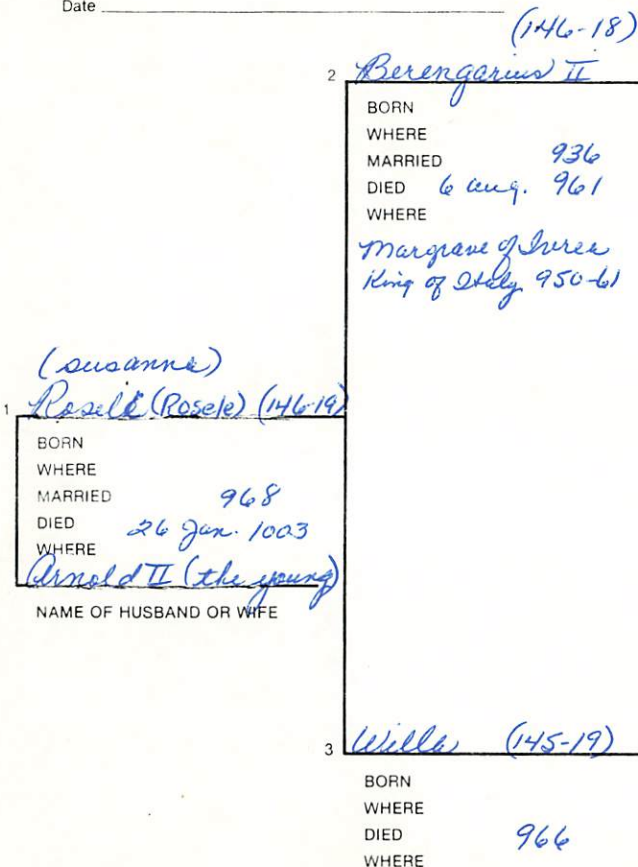 Date
(146-18)
2 Berengarius II
BORN
WHERE
MARRIED 936
DIED 6 aug. 961
WHERE
Margrave of Ivrea
King of Italy 950-61
(susanna)
1 Roselé (Rosele) (146-19)
BORN
WHERE
MARRIED 968
DIED 26 Jan. 1003
WHERE
Arnold II (the young)
NAME OF HUSBAND OR WIFE
3 Willa (145-19)
BORN
WHERE
DIED 966
WHERE